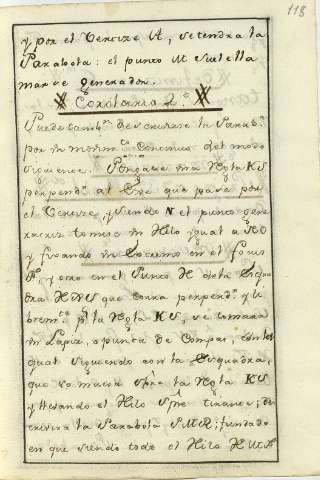 118
y por el Vertize A, se tendra la
Parabola: el punto M se llama
marze generador.
Corolario 2.º
Puede tamb.n descrivirse la Parab.ª
por un movim.to continuo del modo
siguiente. Pongase una Regla KS
perpend.r al Exe que pase por
el Vertize, y siendo N el punto gene
tomese un Hilo ygual a KO
y fixando un Extremo en el focus
F, y otro en el Punto H dela Esqua
dra HNS que corra perpend.r y li
brem.te p.r la Regla KS, se tomara
un Lapiz, o punta de Compas, con lo
qual siguiendo con la Esquadra,
que se mueva spre la Regla KS
y llevando el Hilo spre tirante; de
crivira la Parabola SMR: fundado
en que siendo todo el Hilo HMF